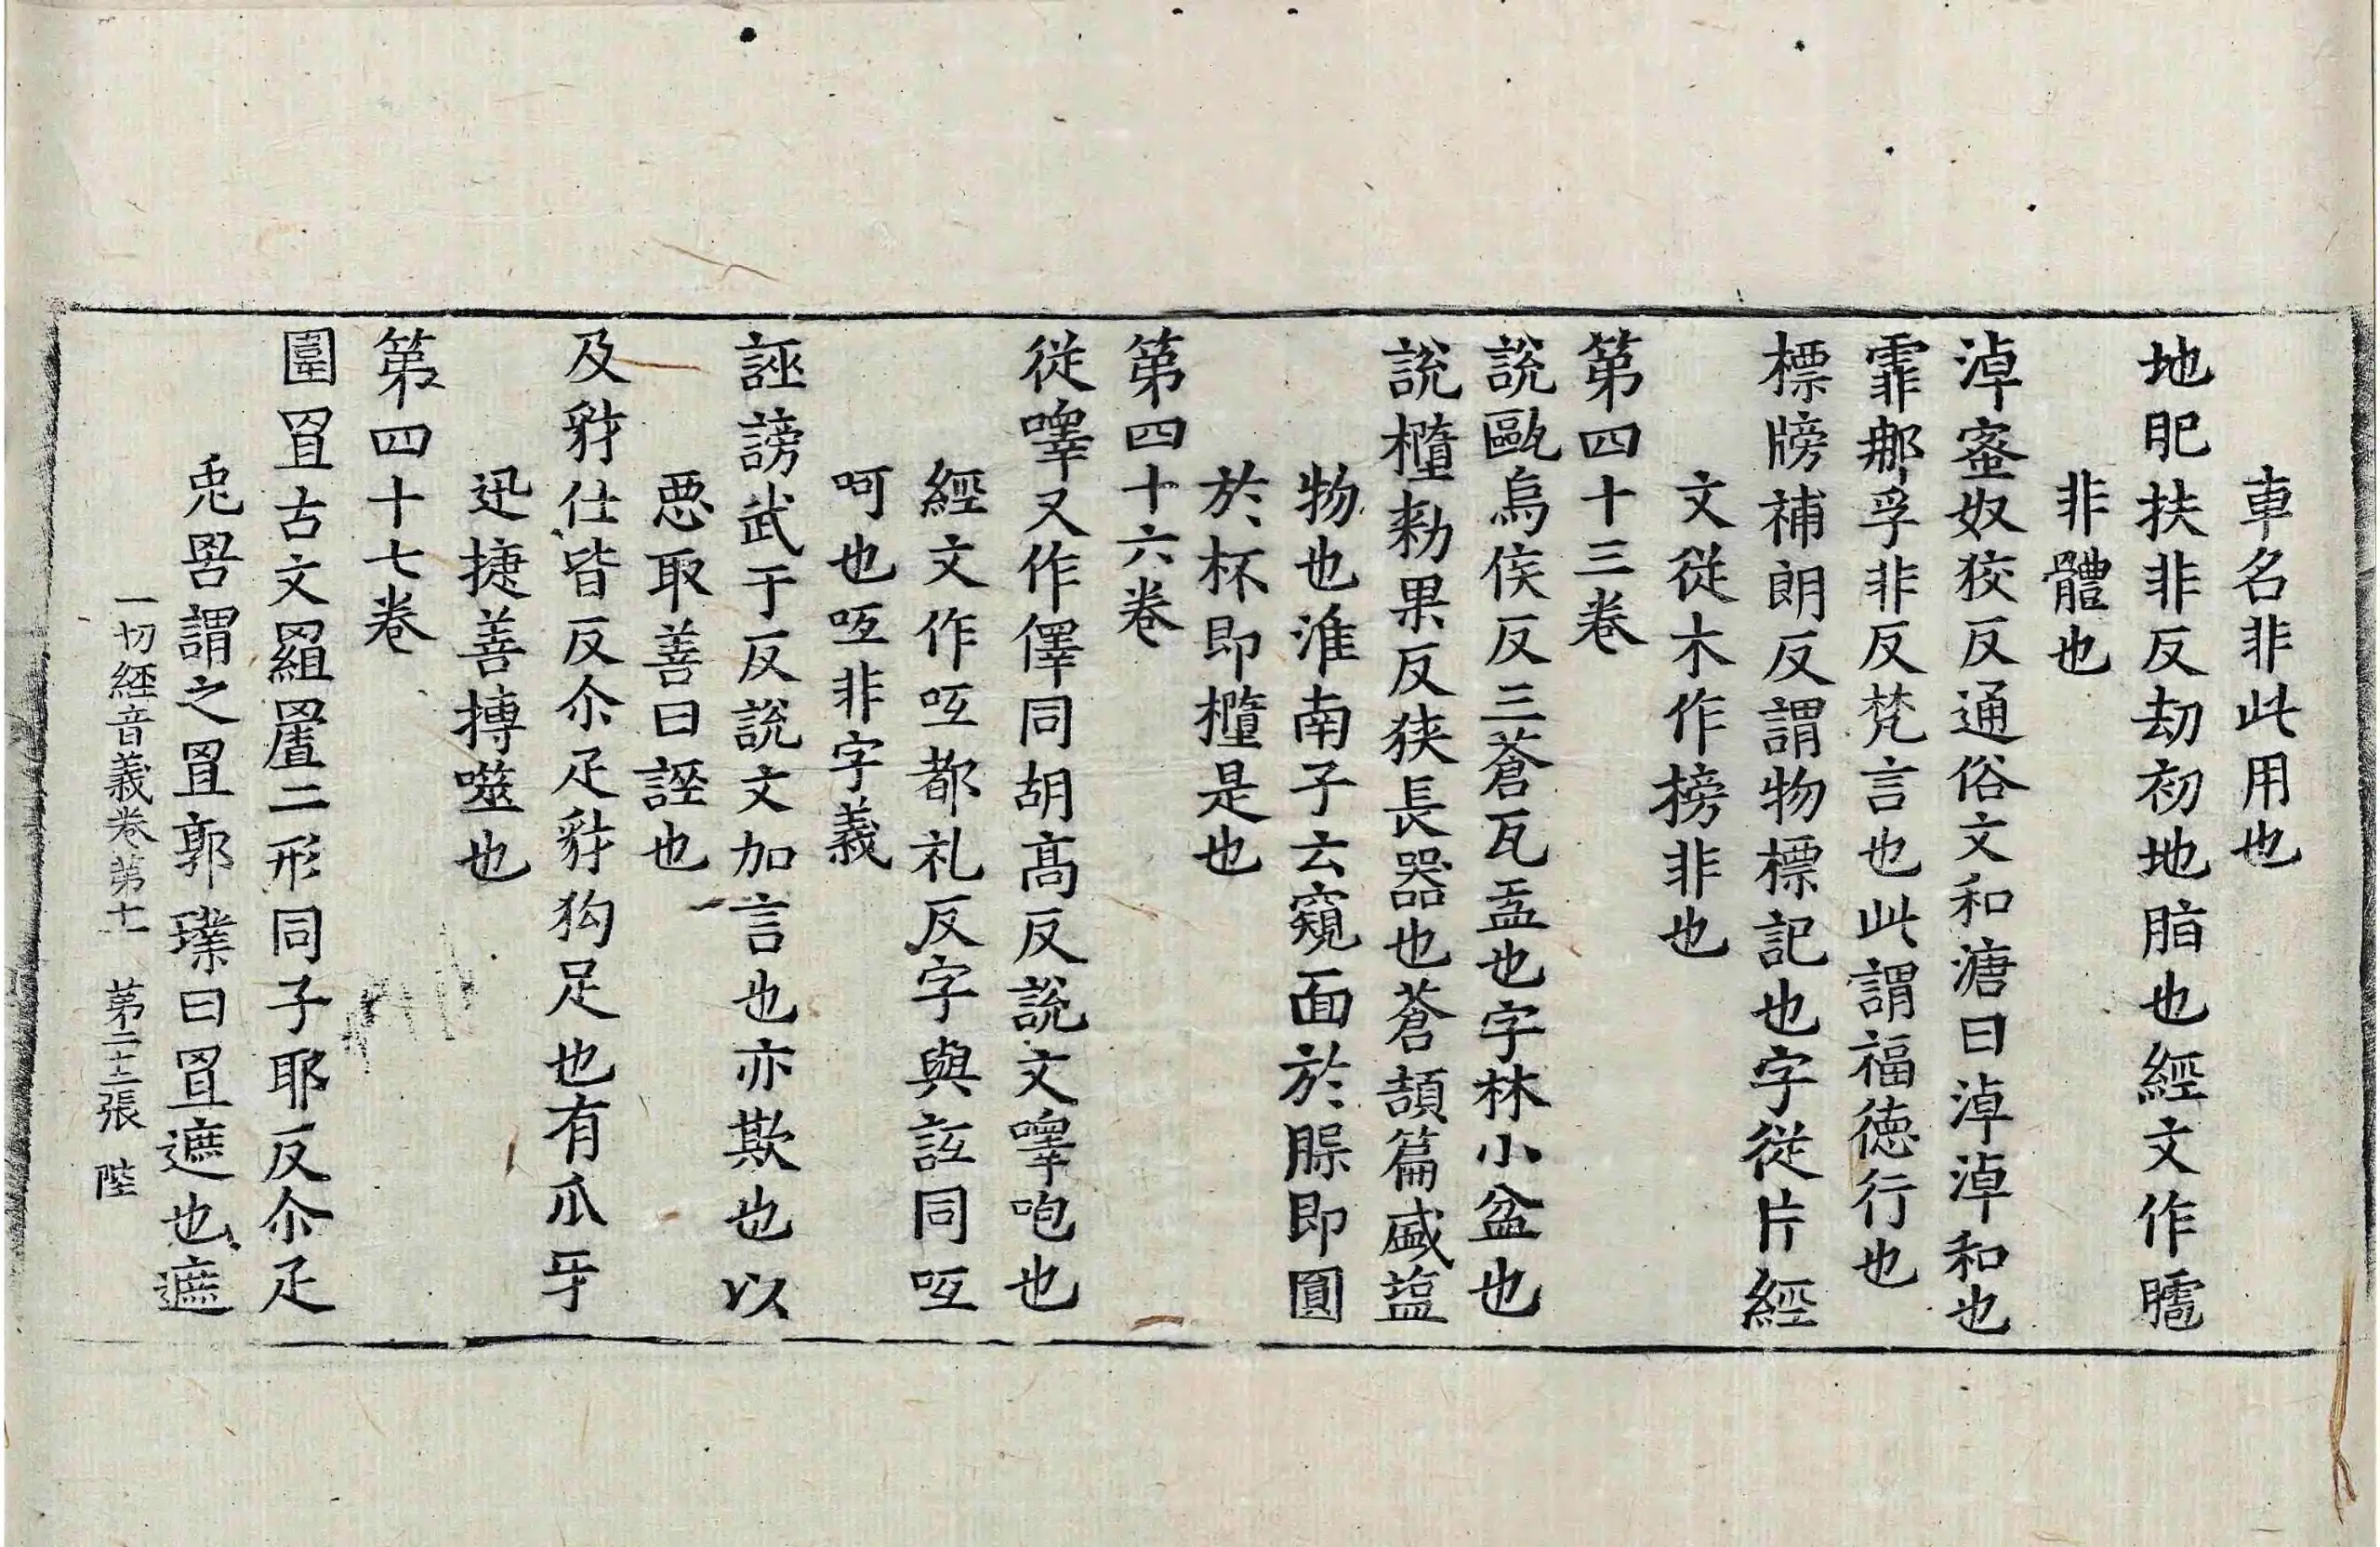 車名非此用也
地肥扶非反劫初地脂也經文作䐗
非體也
淖蜜奴狡反通俗文和溏曰淖淖和也
霏那孚非反梵言也此謂福德行也
標牓補朗反謂物標記也字從片經
文從木作榜非也
第四十三卷
說甌烏侯反三蒼瓦盂也字林小盆也
說橢勑果反狹長器也蒼頡篇盛塩
物也淮南子云窺面於脤即圓
於杯即橢是也
第四十六卷
從嘷又作㑺同胡高反說文嘷咆也
經文作呧都礼反字與詆同呧
呵也呧非字義
誣謗武于反說文加言也亦欺也以
惡取善曰誣也
及豺仕皆反尒疋豺狗足也有爪牙
迅捷善搏噬也
第四十七卷
圖罝古文䍡罝二形同子耶反尒疋
兎罟謂之罝郭璞曰罝遮也遮
一切經音義卷第十一 第二十二張 陛